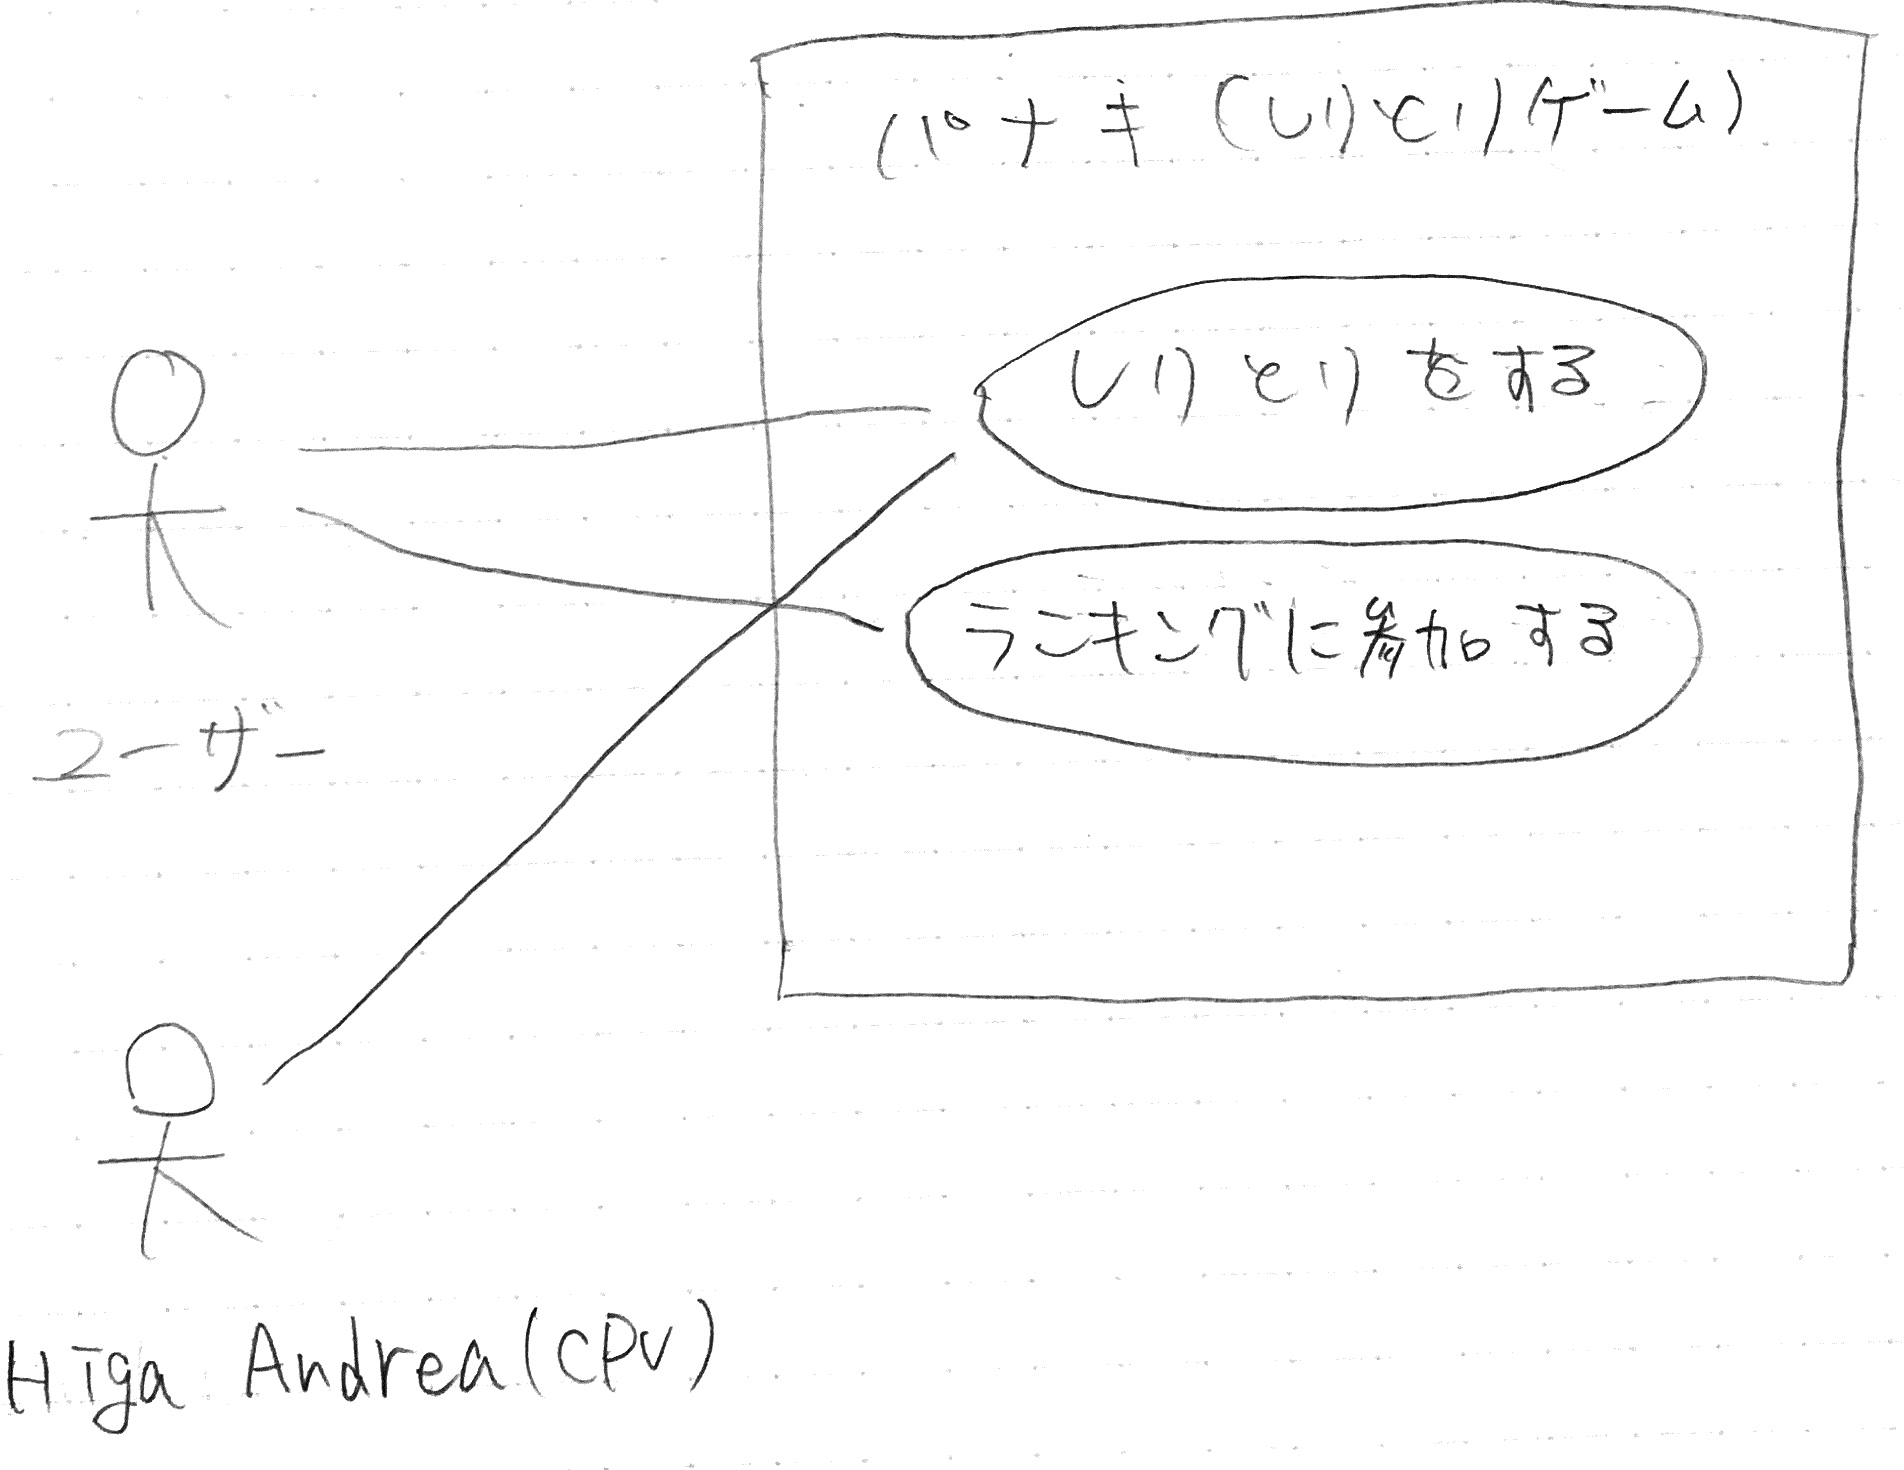 パナキ(しりとりゲーム)
しりとりをする
ランキングに参加する
ユーザー
Higa Andrea(CPU)